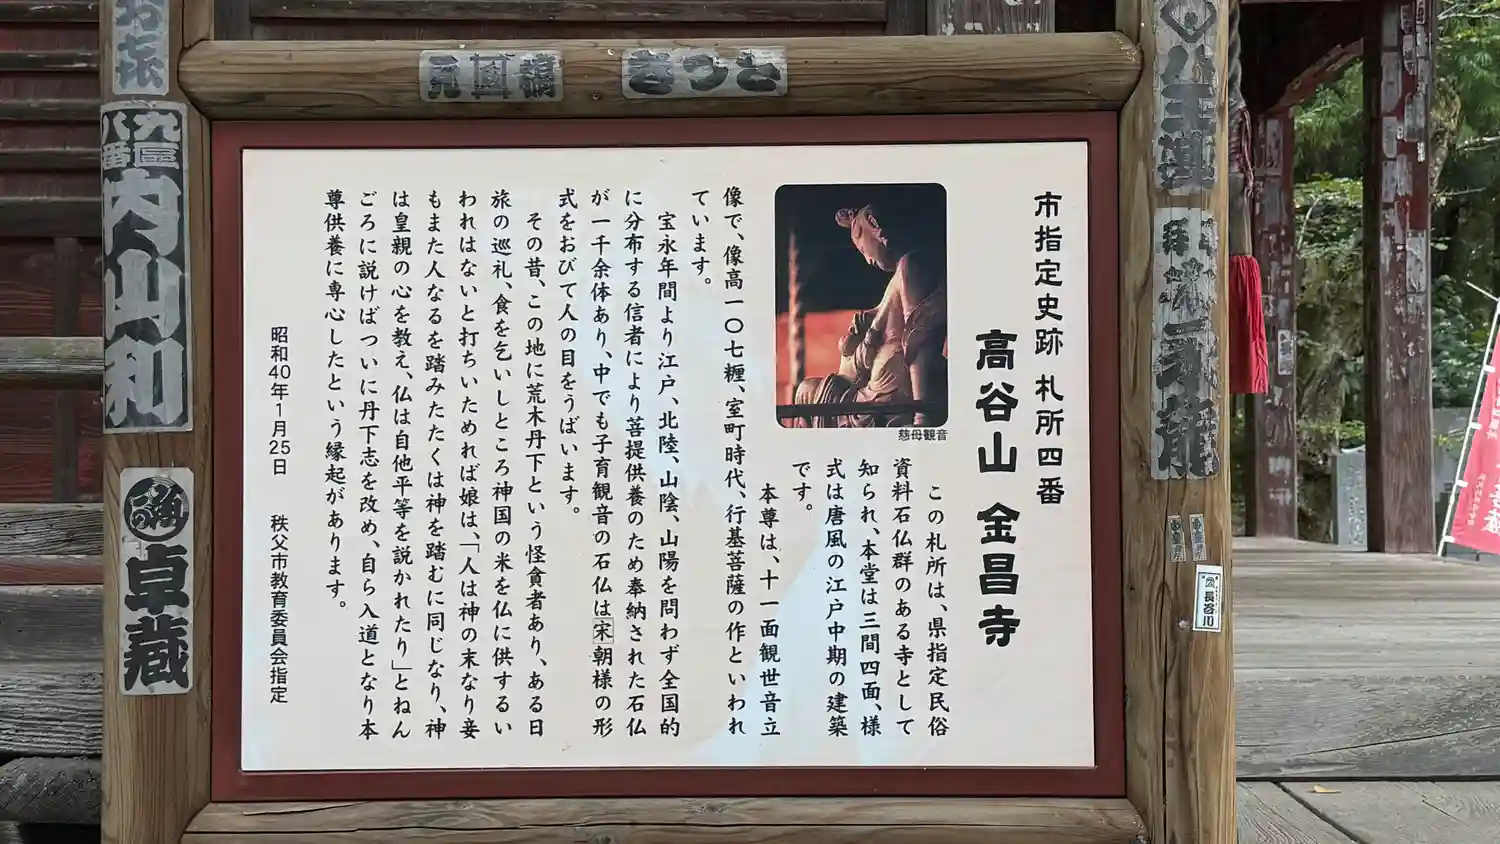 市指定史跡 札所四番
高谷山 金昌寺
この札所は、県指定民俗
資料石仏群のある寺として
知られ、本堂は三間四面、様
式は唐風の江戸中期の建築
です。
本尊は、十一面観世音立
像で、像高一〇七糎、室町時代、行基菩薩の作といわれ
ています。
宝永年間より江戸、北陸、山陰、山陽を問わず全国的
に分布する信者により菩提供養のため奉納された石仏
が一千余体あり、中でも子育観音の石仏は宋朝様の形
式をおびて人の目をうばいます。
その昔、この地に荒木丹下という怪貪者あり、ある日
旅の巡礼、食を乞いしところ神国の米を仏に供するい
われはないと打ちいためれば娘は、「人は神の末なり妾
もまた人なるを踏みたたくは神を踏むに同じなり、神
は皇親の心を教え、仏は自他平等を説かれたり」とねん
ごろに説けばついに丹下志を改め、自ら入道となり本
尊供養に専心したという縁起があります。
昭和40年1月25日 秩父市教育委員会指定
慈母観音
きつと
九区
八番
内山和
卓蔵
長谷川